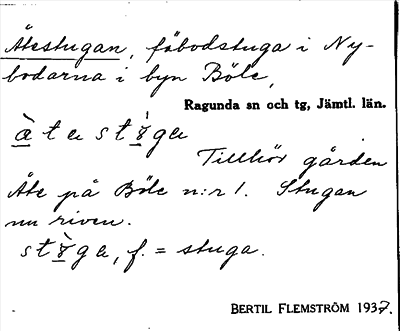 Åtestugan, fäbodstuga i Ny-
bodarna i byn Böle,
Ragunda sn och tg, Jämtl. län.
Tillhör gården
Åte på Böle n:r 1. Stugan
nu riven.
f. = stuga.
BERTIL FLEMSTRÖM 1937.